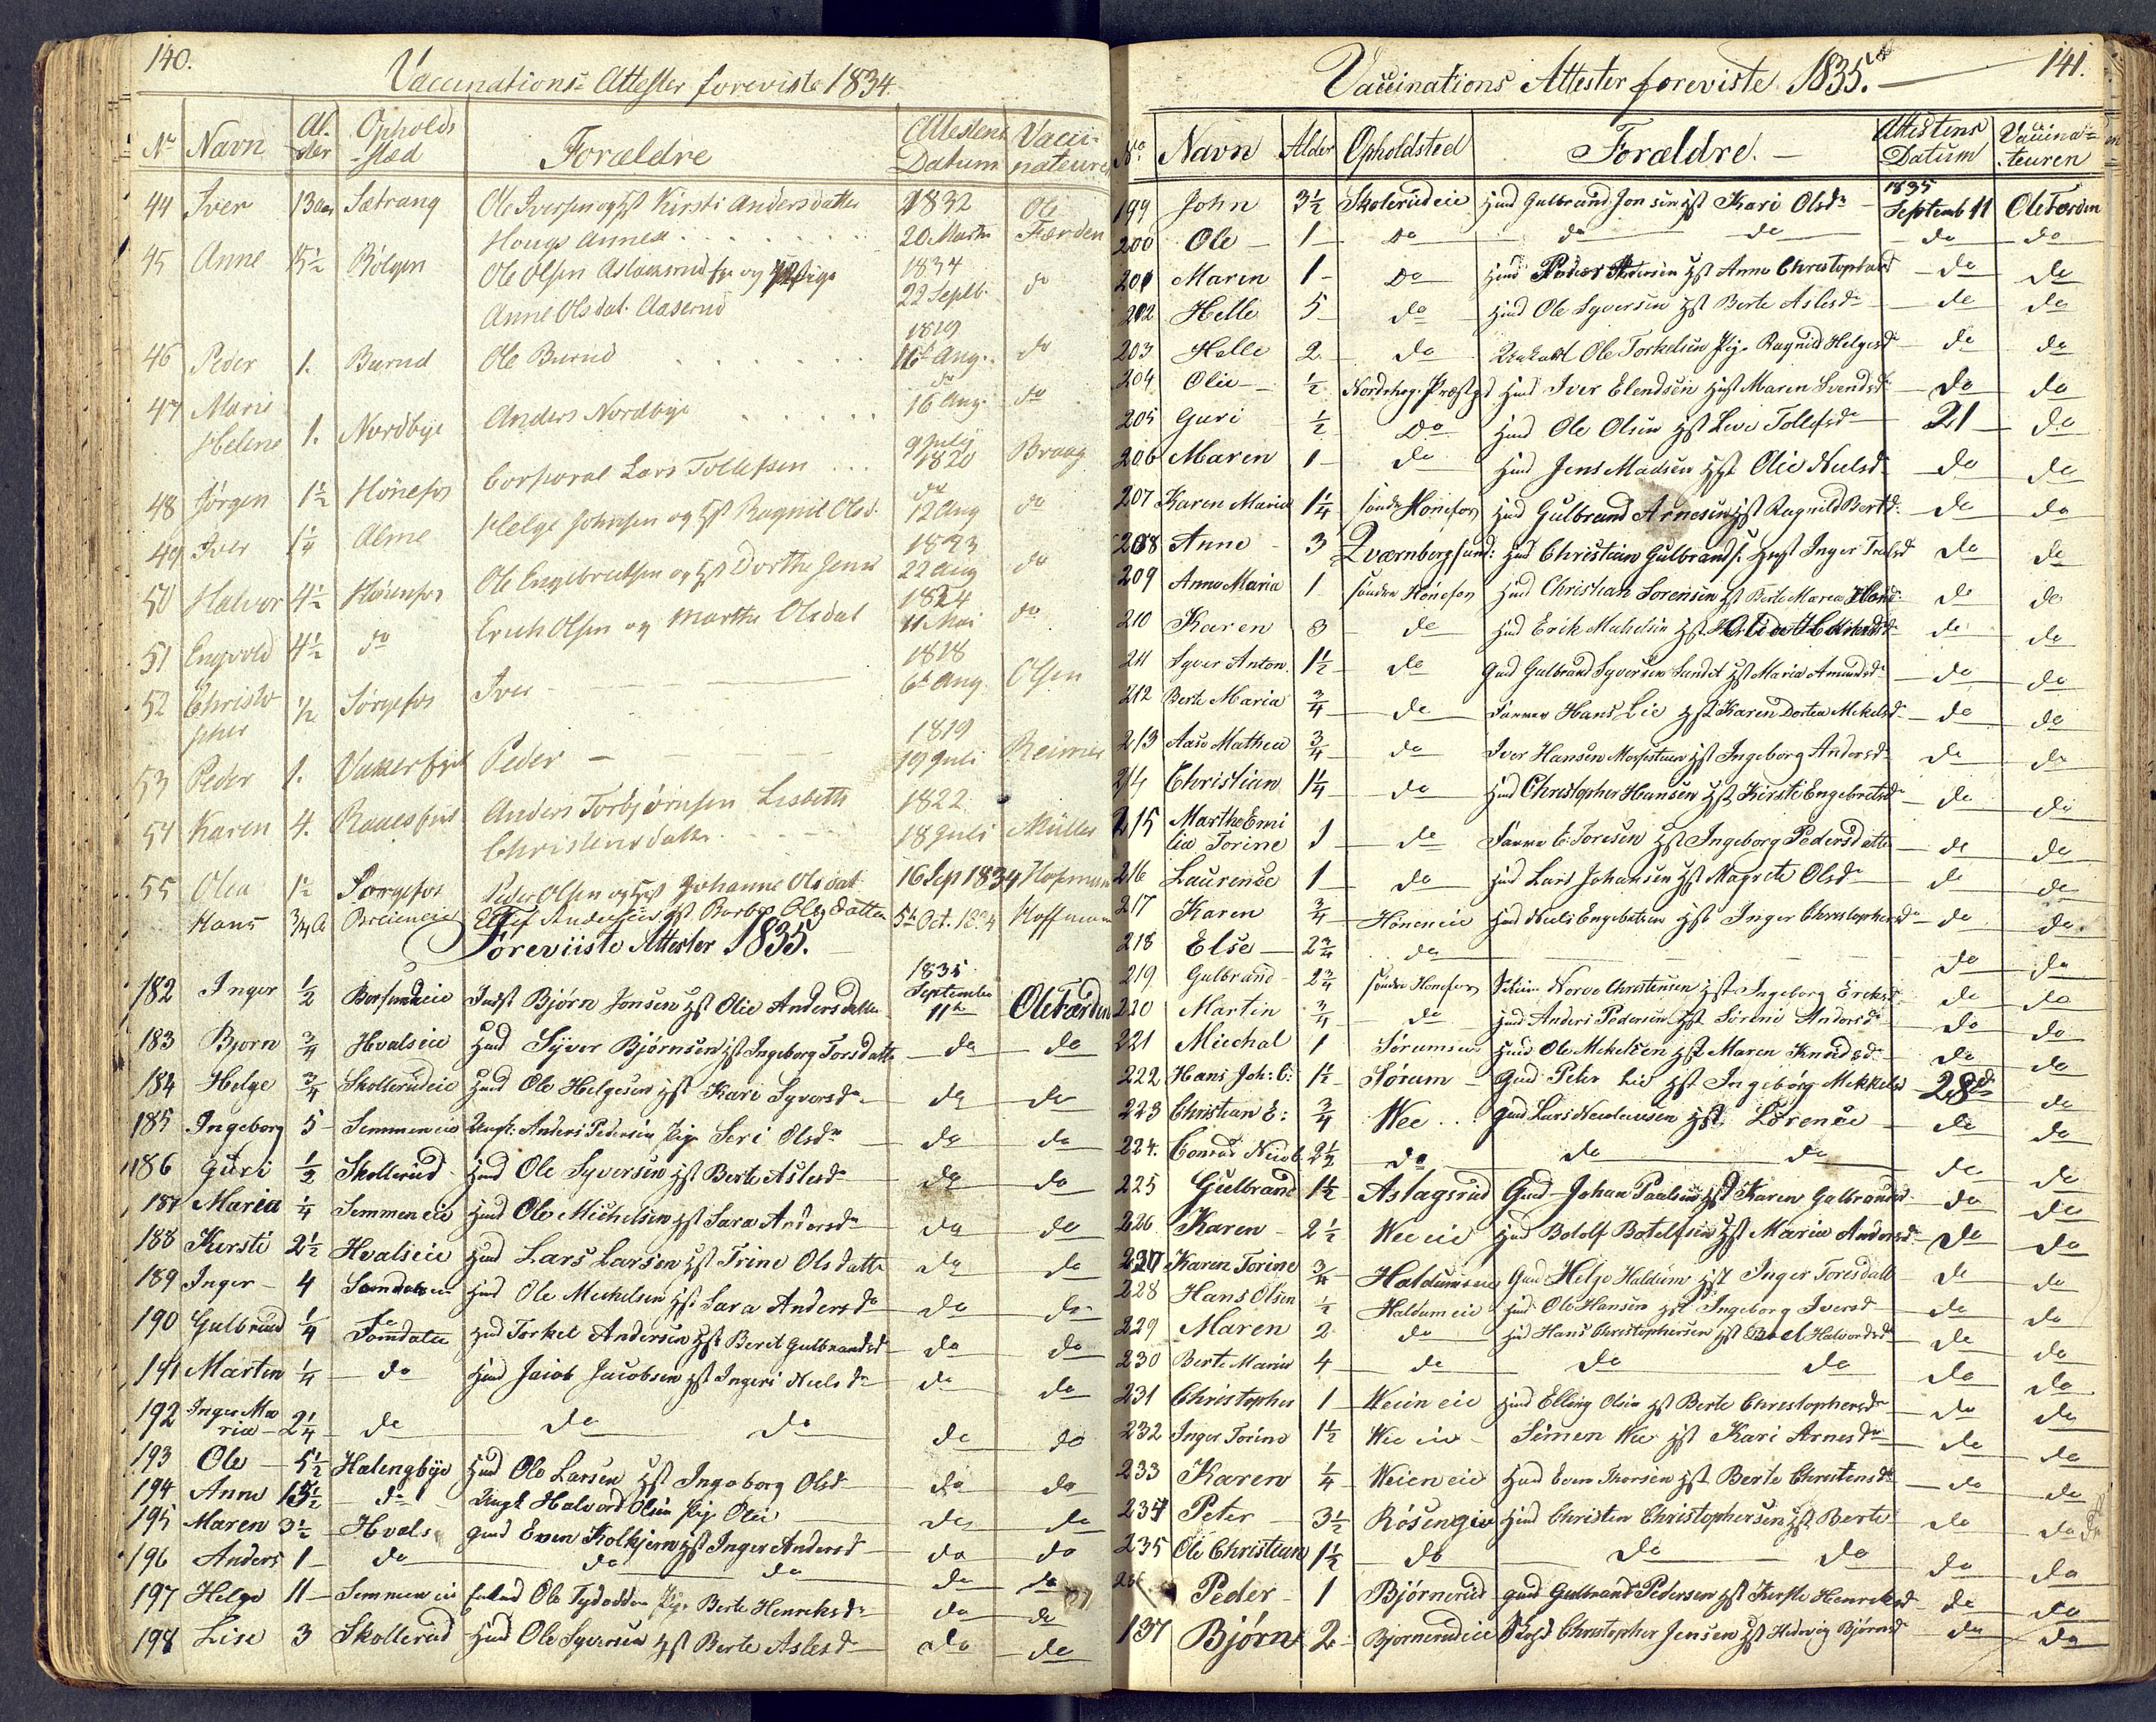 140.
Vaccinations-Attester foreviste 1834.
No Navn Al-der Opholds-sted Forældre Attestens Datum Vacci-nateuren
44 Iver 13 aar Sætrang Ole Iversen og Hst Kirsti Andersdatter 1832 Ole
Hougs Annex 20 Marts Færden
45 Anne 15½ Bølgen Ole Olsen Aslaksrud og Pige 1834
Anne Olsdat. Aaserud 22 Septb. do
46 Peder 1. Burud Ole Burud 1819 16 Aug. do
47 Marie Helene 1. Nordbye Anders Nordbye do 16 Aug. do
48 Jørgen 1½ Hønefos Corporal Lars Tollefsen 9 July 1820 Braag
49 Iver 1¼ Alme Helge Johnsen og Hst Ragnil Olsd. do 12 Aug do
50 Halvor 4½ Hønefos Ole Engebretsen og Hst Dorthe Jensd 1823 22 Aug do
51 Engvold 4½ do Erich Olsen og Marthe Olsdat 1824 11 Mai do
52 Christopher ½ Sørgefos Iver 1818 6t Aug. Olsen
53 Peder 1. Peder 1819 19 Juli Reimer
54 Karen 4. Anders Torbjørnsen Lisbeth 1822
Christensdatter 18 Juli Müller
55 Olea Sørgefos Peder Olsen og Hst Johanne Olsdat 16 Sep 1834 Hofmann
Hans ¾ A Andersen Hst Barbro Olsdatter 5te Oct. 1834 Hoffmann
Foreviiste Attester 1835.
182 Inger ½ Indst Bjørn Jonsen Hst Olie Andersdatter 1835 September 11te Ole Færden
183 Bjørn ¾ Hvalseie Hmd Syver Bjørnsen Hst Ingeborg Torsdatter do do
184 Helge ¾ Skollerudeie Hmd Ole Helgesen Hst Kari Syversd do do
185 Ingeborg 5 Semmeneie Ungk. Anders Pedersen Pige Seri Olsdr do do
186 Guri ½ Skollerud Hmd Ole Syversen Hst Berte Aslesd do do
187 Maria ¼ Semmeneie Hmd Ole Michelsen Hst Sara Andersdr do do
188 Kirsti 2½ Hvalseie Hmd Lars Larsen Hst Trine Olsdatter do do
189 Inger 4 Hmd Ole Michelsen Hst Sara Andersdr do do
190 Gulbrand ¼ Hmd Torkel Andersen Hst Berit Gulbrandsd do do
191 Martin ¼ do Hmd Jacob Jacobsen Hst Ingeri Nielsdr do do
192 Inger Maria 2¼ do do do do do
193 Ole 5½ Halingbye Hmd Ole Larsen Hst Ingeborg Olsd do do
194 Anne do Ungk Halvord Olsen Pige Olie do do
195 Maren 3½ Hvals Gmd Even Kolkjern Hst Inger Andersd do do
196 Anders 1 do do do do do
197 Helge 11 Semmeneie Ole Pige Berte Henriksdr do do
198 Lise 3 Skollerud Hmd Ole Syversen Hst Berte Aslesdr do do
141.
Vaccinations Attester foreviste 1835.
No. Navn Alder Opholdsted Forældre. Attestens Datum Vaccina-teuren
199 John 3½ Skolerudeie Hmd Gulbrand Jonsen Hst Kari Olsdr 1835 Septemb 11 Ole Færden
200 Ole 1 do do do do do
201 Maren 1 do Hmd Peder Hst Anne Christophersd do do
202 Helle 5 do Hmd Ole Syversen Hst Berte Aslesdr do do
203 Helle 2 do Ole Torkelsen Pige Ragnild Helgesdr do do
204 Olie ½ Nordrehog. Præstgd Hmd Iver Elendsen Hst Maren Svendsd do do
205 Guri ½ do Hmd Ole Olsen Hst Live Tollefsdr 21 do
206 Maren 1 do Hmd Jens Madsen Hst Olie Nielsd do do
207 Karen Maria 1¼ søndre Hønefos Hmd Gulbrand Arnesen Hst Ragnild Bertsd do do
208 Anne 3 Qværnbergsund: Hmd Christian Gulbrands. Hst Inger do do
209 Anne Maria 1 søndre Hønefos Hmd Christian Sorensen Hst Berte Maria do do
210 Karen 3 do Hmd Erik Hst do do
211 Syver Anton. 1½ do Gmd Gulbrand Syversen Hst Maria Amundsdr do do
212 Berte Maria ¾ do Farver Hans Lie Hst Karen Dortea Mikelsd do do
213 Aase Mathea ¾ do Iver Hansen Hst Ingeborg Andersdr do do
214 Christian 1¼ do Hmd Christopher Hansen Hst Kirsti Engebretsdr do do
215 Marthe Emilia Torine 1 do Farver C. Toresen Hst Ingeborg Pedersdatter do do
216 Laurense 1 do Hmd Lars Johansen Hst Magrete Olsdr do do
217 Karen ¾ Høneneie Hmd Niels Engebretsen Hst Inger Christophersdr do do.
218 Else 2¾ do do do
219 Gulbrand 2¾ søndre Hønefos Christensen Hst Ingeborg Ericksd do do
220 Martin ¾ do Hmd Anders Pedersen Hst Sørine Andersdr do do
221 Miechal 1 Hmd Ole Mekelsen Hst Maren Knudsdr do do
222 Hans Joh: C: 1½ Sørum Gmd Peter Lie Hst Ingeborg Mekkelsd 28de do
223 Christian E: ¾ Wee Gmd Lars Hst Lorense do do
224. Conrad 2½ do do do do do
225 Gulbrand 1½ Aslagsrud Gmd Johan Paulsen Hst Karen Gulbrandsd do do
226 Karen 2½ Weeeie Hmd Bololf Botelfsen Hst Maria Andersd do do
227 Karen Torine ¾ Gmd Helge Haldum Hst Inger Toresdatt do do
228 Hans Olsen ½ Haldumeie Hmd Ole Hansen Hst Ingeborg Iversd do do
229 Maren 2 do Hmd Hans Christophersen Hst Halvordsdr do do
230 Berte Maria 4 do do do do do
231 Christopher 1 Weieneie Hmd Elling Olsen Hst Berte Christophersdr do do
232 Inger Torine 1½ Wee eie Simen Wee Hst Kari Arnesdr do do
233 Karen ¼ Weieneie Hmd Even Thorsen Hst Berte Christensdr do do
234 Peter 3½ Hmd Christen Christophersen Hst Berte do do
235 Ole Christian 1½ do do do do do
Peder 1 Bjørnerud Gmd Gulbrand Pedersen Hst Kirstie Henriksd do do
137 Bjørn 2 Bjørnerudeie Christopher Jensen Hst Hedevig Bjørnsd do do